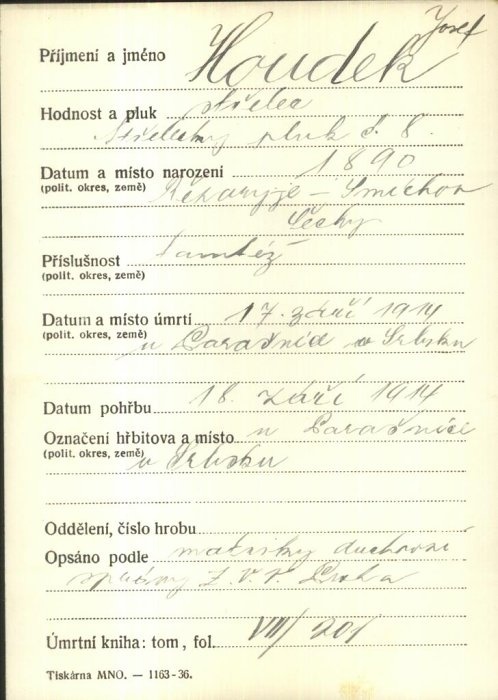 Josef
Příjmení a jméno Houdek
Hodnost a pluk střelec
Střelecký pluk č. 8.
Datum a místo narození 1890
(polit. okres, země) Řeporyje – Smíchov
Čechy
Příslušnost tamtéž
(polit. okres, země)
Datum a místo úmrtí 17. září 1914
(polit. okres, země) u Parašnice v Srbsku
Datum pohřbu 18. září 1914
Označení hřbitova a místo u Parašnice
(polit. okres, země) v Srbsku
Oddělení, číslo hrobu
Opsáno podle matriky duchovní
správy Z. V. V. Praha
Úmrtní kniha: tom, fol. VIII/201
Tiskárna MNO. — 1163-36.